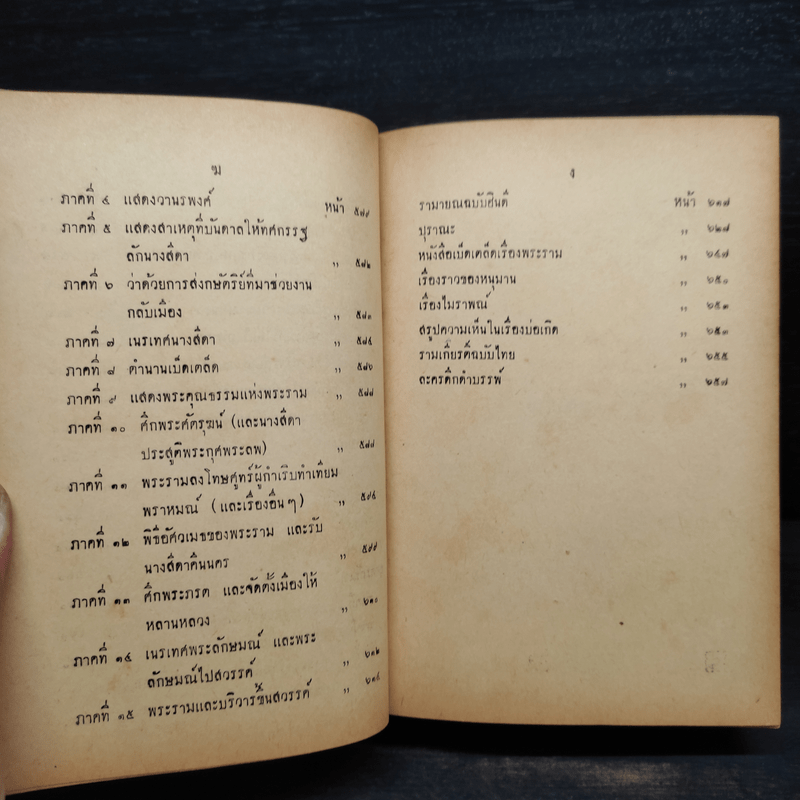 ฆ
ภาคที่ ๔ แสดงวานรพงศ์ หน้า ๕๗๙
ภาคที่ ๕ แสดงสาเหตุที่บันดาลให้ทศกรรฐ
ลักนางสีดา ,, ๕๘๒
ภาคที่ ๖ ว่าด้วยการส่งกษัตริย์ที่มาช่วยงาน
กลับเมือง ,, ๕๘๓
ภาคที่ ๗ เนรเทศนางสีดา ,, ๕๘๕
ภาคที่ ๘ ตำนานเบ็ดเตล็ด ,, ๕๘๖
ภาคที่ ๙ แสดงพระคุณธรรมแห่งพระราม ,, ๕๘๘
ภาคที่ ๑๐ ศึกพระศัตรุฆน์ (และนางสีดา
ประสูติพระกุศพระลพ) ,, ๕๘๘
ภาคที่ ๑๑ พระรามลงโทษศูทร์ผู้กำเริบทำเทียม
พราหมณ์ (และเรื่องอื่นๆ) ,, ๕๙๔
ภาคที่ ๑๒ พิธีอัศวเมธของพระราม และรับ
นางสีดาคืนนคร ,, ๕๙๙
ภาคที่ ๑๓ ศึกพระภรต และจัดตั้งเมืองให้
หลานหลวง ,, ๖๑๐
ภาคที่ ๑๔ เนรเทศพระลักษมณ์ และพระ
ลักษมณ์ไปสวรรค์ ,, ๖๑๒
ภาคที่ ๑๕ พระรามและบริวารขึ้นสวรรค์ ,, ๖๑๔
ง
รามายณฉบับฮินดี หน้า ๖๑๗
ปุราณะ ,, ๖๒๗
หนังสือเบ็ดเตล็ดเรื่องพระราม ,, ๖๔๗
เรื่องราวของหนุมาน ,, ๖๕๐
เรื่องไมราพณ์ ,, ๖๕๑
สรุปความเห็นในเรื่องบ่อเกิด ,, ๖๕๓
รามเกียรติ์ฉบับไทย ,, ๖๕๕
ละครดึกดำบรรพ์ ,, ๖๕๗